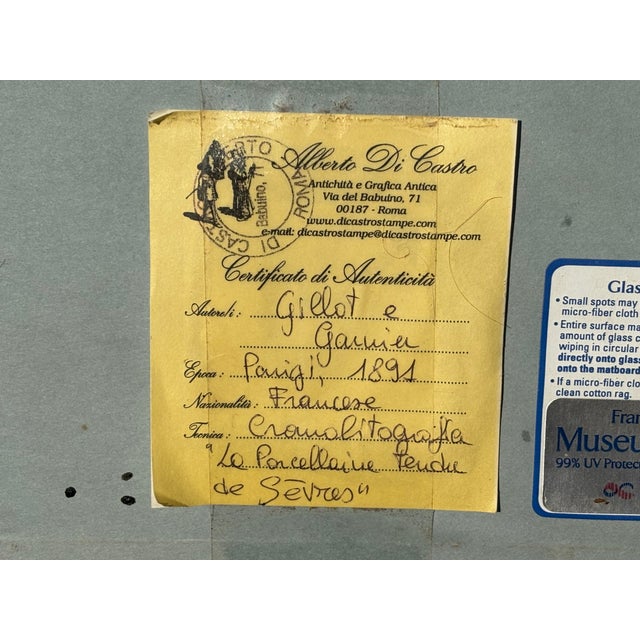 Alberto Di Castro
Antichità e Grafica Antica
Via del Babuino, 71
00187 - Roma
www.dicastrostampe.com
e-mail: dicastrostampe@dicastrostampe.com
DI CAST
Babuino, 71
ROMA
Certificato di Autenticità
Autore/i: Gillot e
Garnier
Epoca: Parigi, 1891
Nazionalità: Francese
Tecnica: Cromolitografia
"La Porcellaine tendre
de Sèvres"
Glas
• Small spots may
micro-fiber cloth
• Entire surface ma
amount of glass c
wiping in circular
directly onto glass
onto the matboard
• If a micro-fiber clo
clean cotton rag.
Fran
Museu
99% UV Protec